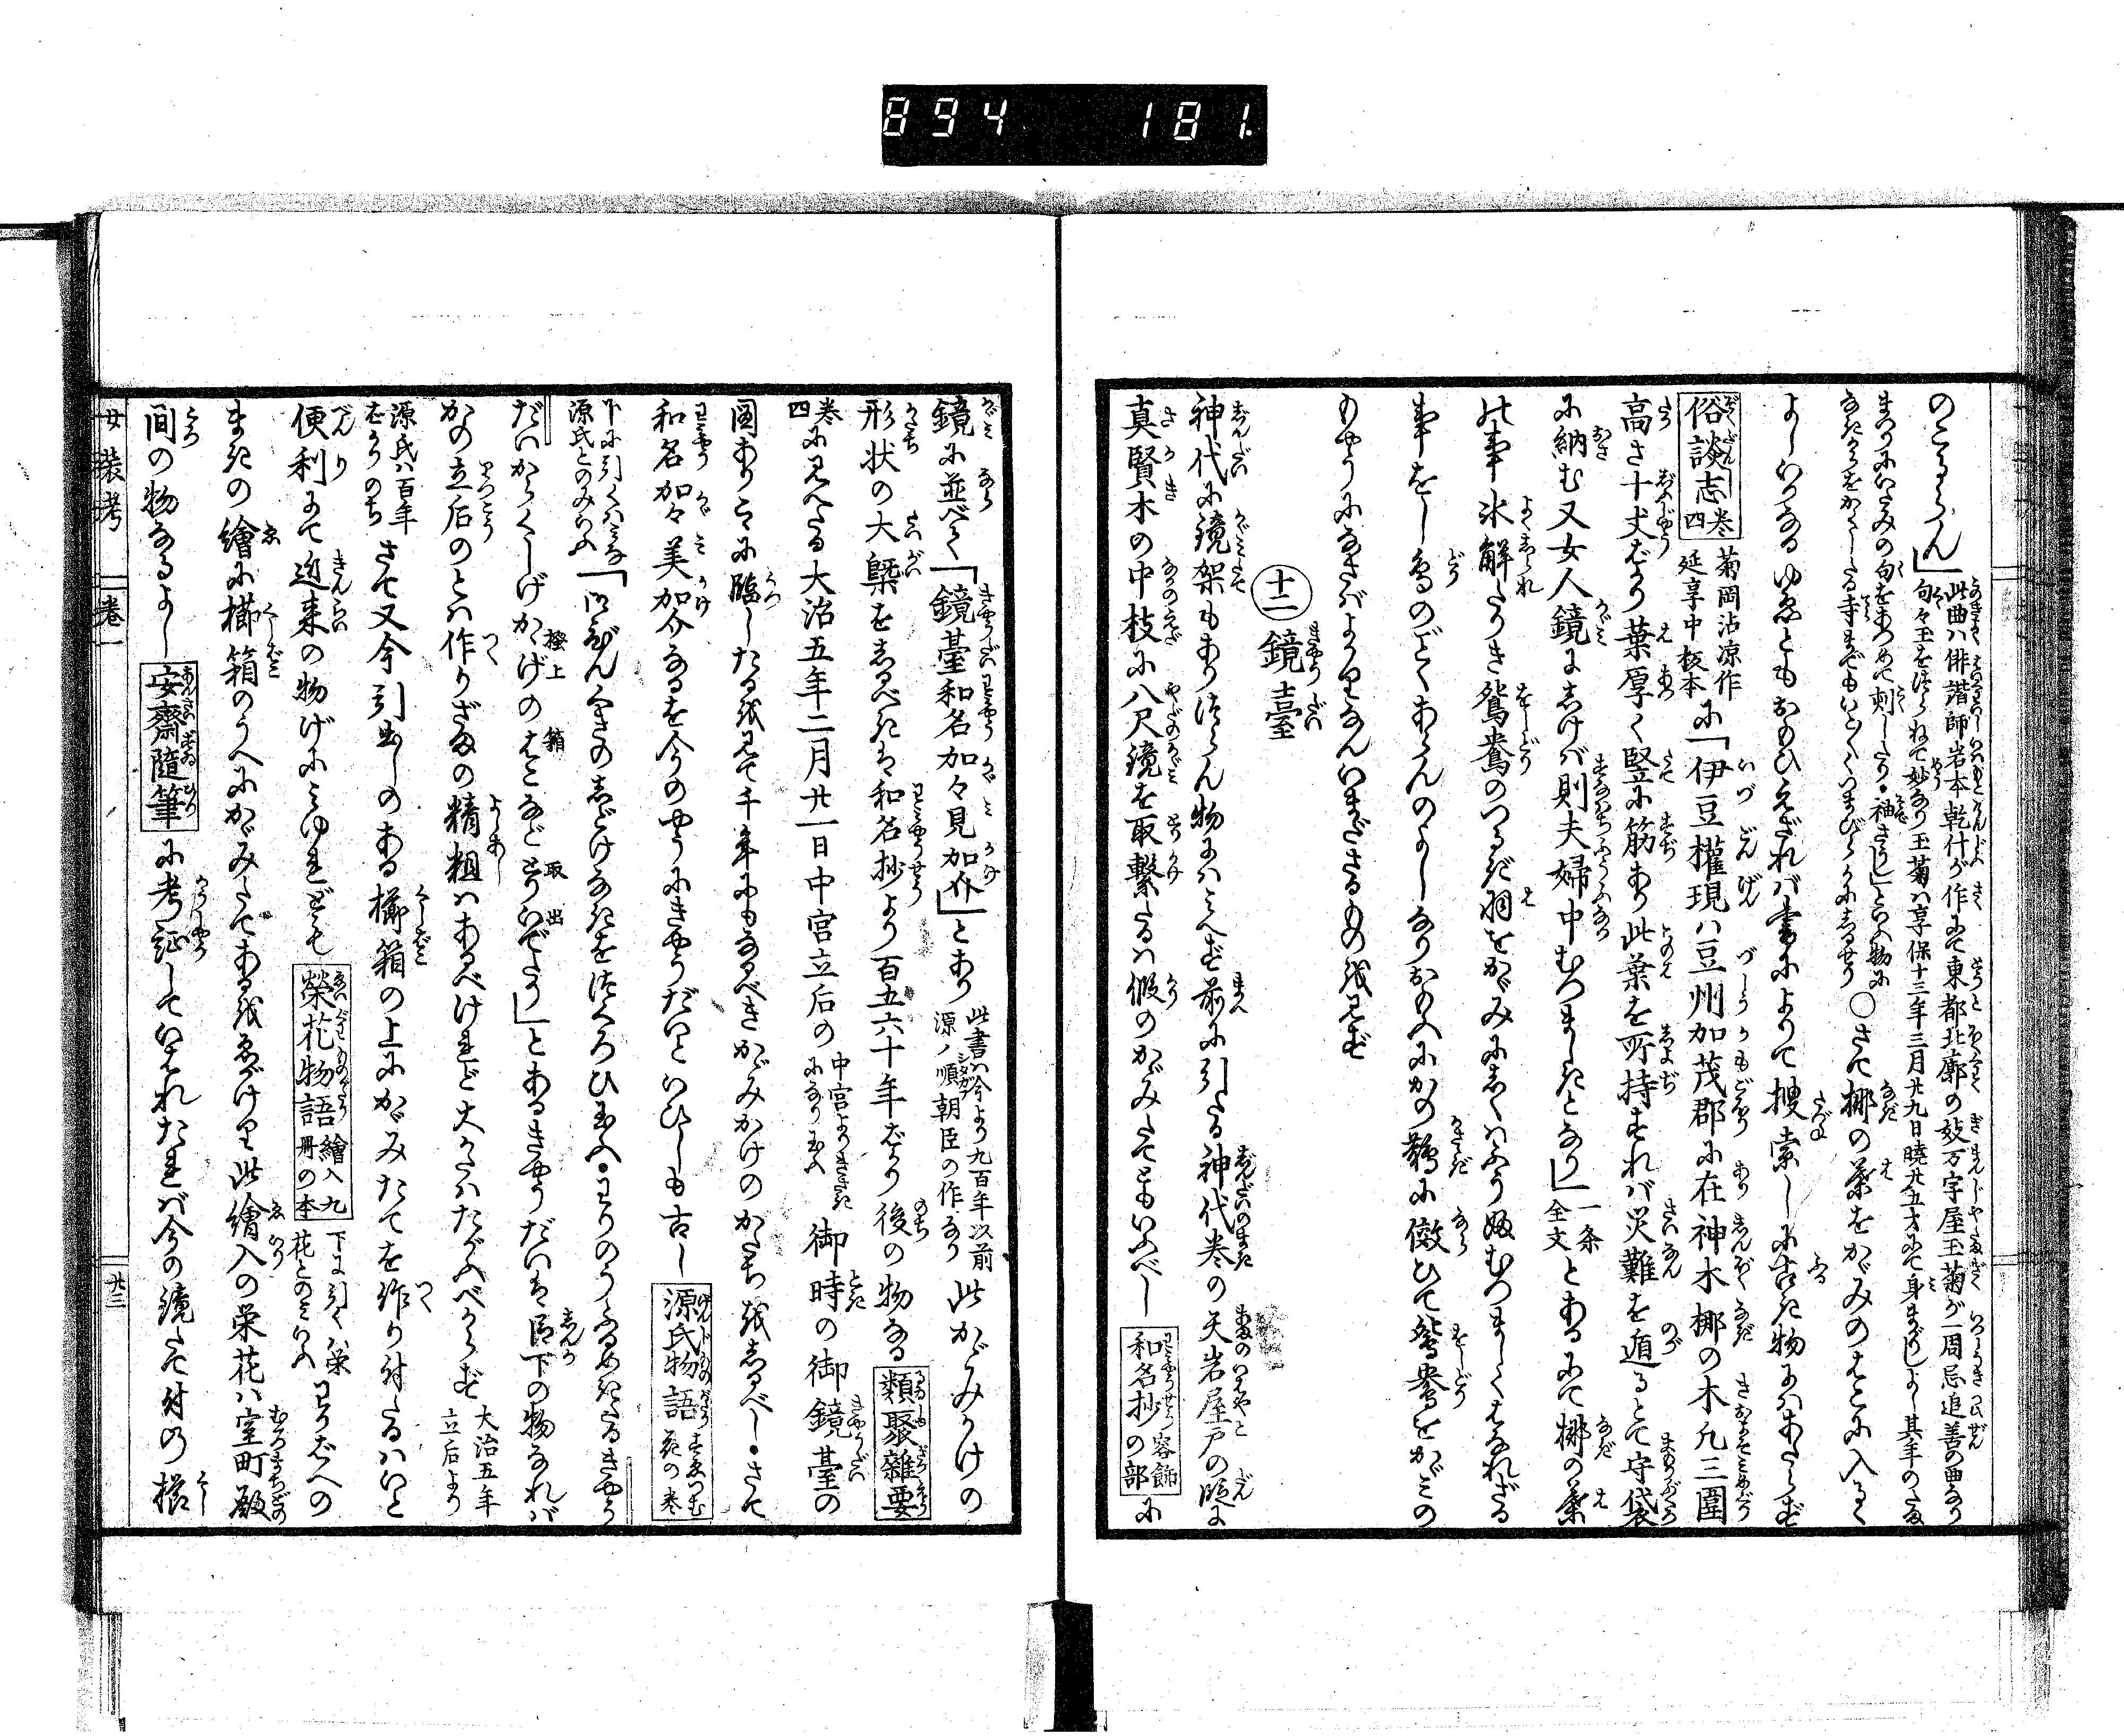 894 181.
のこるらん」此曲ハ俳諧師岩本乾什が作にて東都北廓の妓万字屋玉菊が一周忌追善の曲なり
句々玉をつらねて妙なり玉菊ハ享保十三年三月廿九日暁廿五才にて身まかりしよし其年のたま
まつりにいたみの句をあつめて刻したり・袖さうし」といふ物に
○さて梛の葉をかゞみのはこに入るゝ
よしいかなるゆゑともおもひえざれバ書によりて捜索しに古き物にハあたらず
俗談志巻四 菊岡沾凉作延享中板本に「伊豆権現ハ豆州加茂郡に在神木梛の木凡三圍
高さ十丈ばかり葉厚く竪に筋あり此葉を所持すれバ災難を遁るとて守袋
に納む又女人鏡にしけバ則夫婦中むつましきとなり」一条全文とあるにて梛の葉
の事氷解たりき鴛鴦のつるぎ羽をかゞみにしくハふうふむつましくはなれざる
事をし鳥のごとくあらんのよしなりおもふにかの鵲に倣ひて鴛鴦をかゞみの
もやうになさばよかりなんいまださるもの或見ず
十二 鏡臺
神代に鏡架もありつらん物にハミへず前に引たる神代巻の天岩屋戸の段に
真賢木の中枝に八尺鏡を取繋たるハ假のかゞみたてともいふべし 和名抄容飾の部に
鏡に並べて「鏡臺和名加々見加介」とあり此書ハ今より九百年以前源ノ順朝臣の作なり此かゞみかけの
形状の大槩をしるべきは和名抄より百五六十年ばかり後の物なる類聚雑要
巻四に見へたる大治五年二月廿一日中宮立后の中宮よりききさきになり玉ふ御時の御鏡臺の
圖ありこゝに臨したる或見て千年にもなるべきかゞみかけのかたち或しるべし・さて
和名加々美加介なるを今のやうにきやうだいといひしも古し 源氏物語すゑつむ花の巻
下に引くハミな源氏とのみいふ「御びんぐきのしどけなきをつくろひ玉ふ・わりのうふるめきたるきやう
だいからくしげかゝげのはこなどとりいでたり」とあるきやうだいは臣下の物なれバ
かの立后のとハ作りざまの精粗ハあるべけれど大かたハたがふべからず大治五年立后より
源氏ハ百年ばかりのちさて又今引出しのある櫛箱の上にかゞみたてを作り付たるハいと
便利にて近来の物げにミゆれども 榮花物語繪入九冊の本 下に引くハ栄花とのミいふわらはべの
まきの繪に櫛箱のうへにかゞみたてある或ゑがけり此繪入の栄花ハ室町殿
間の物なるよし 安齋隨筆に考証していはれたれバ今の鏡たて付の櫛
女装考 巻一 廿三